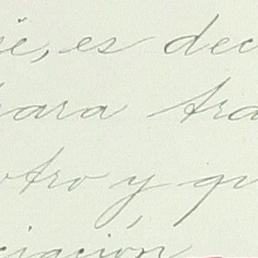 es dec
para tra
otro y qu
ciación